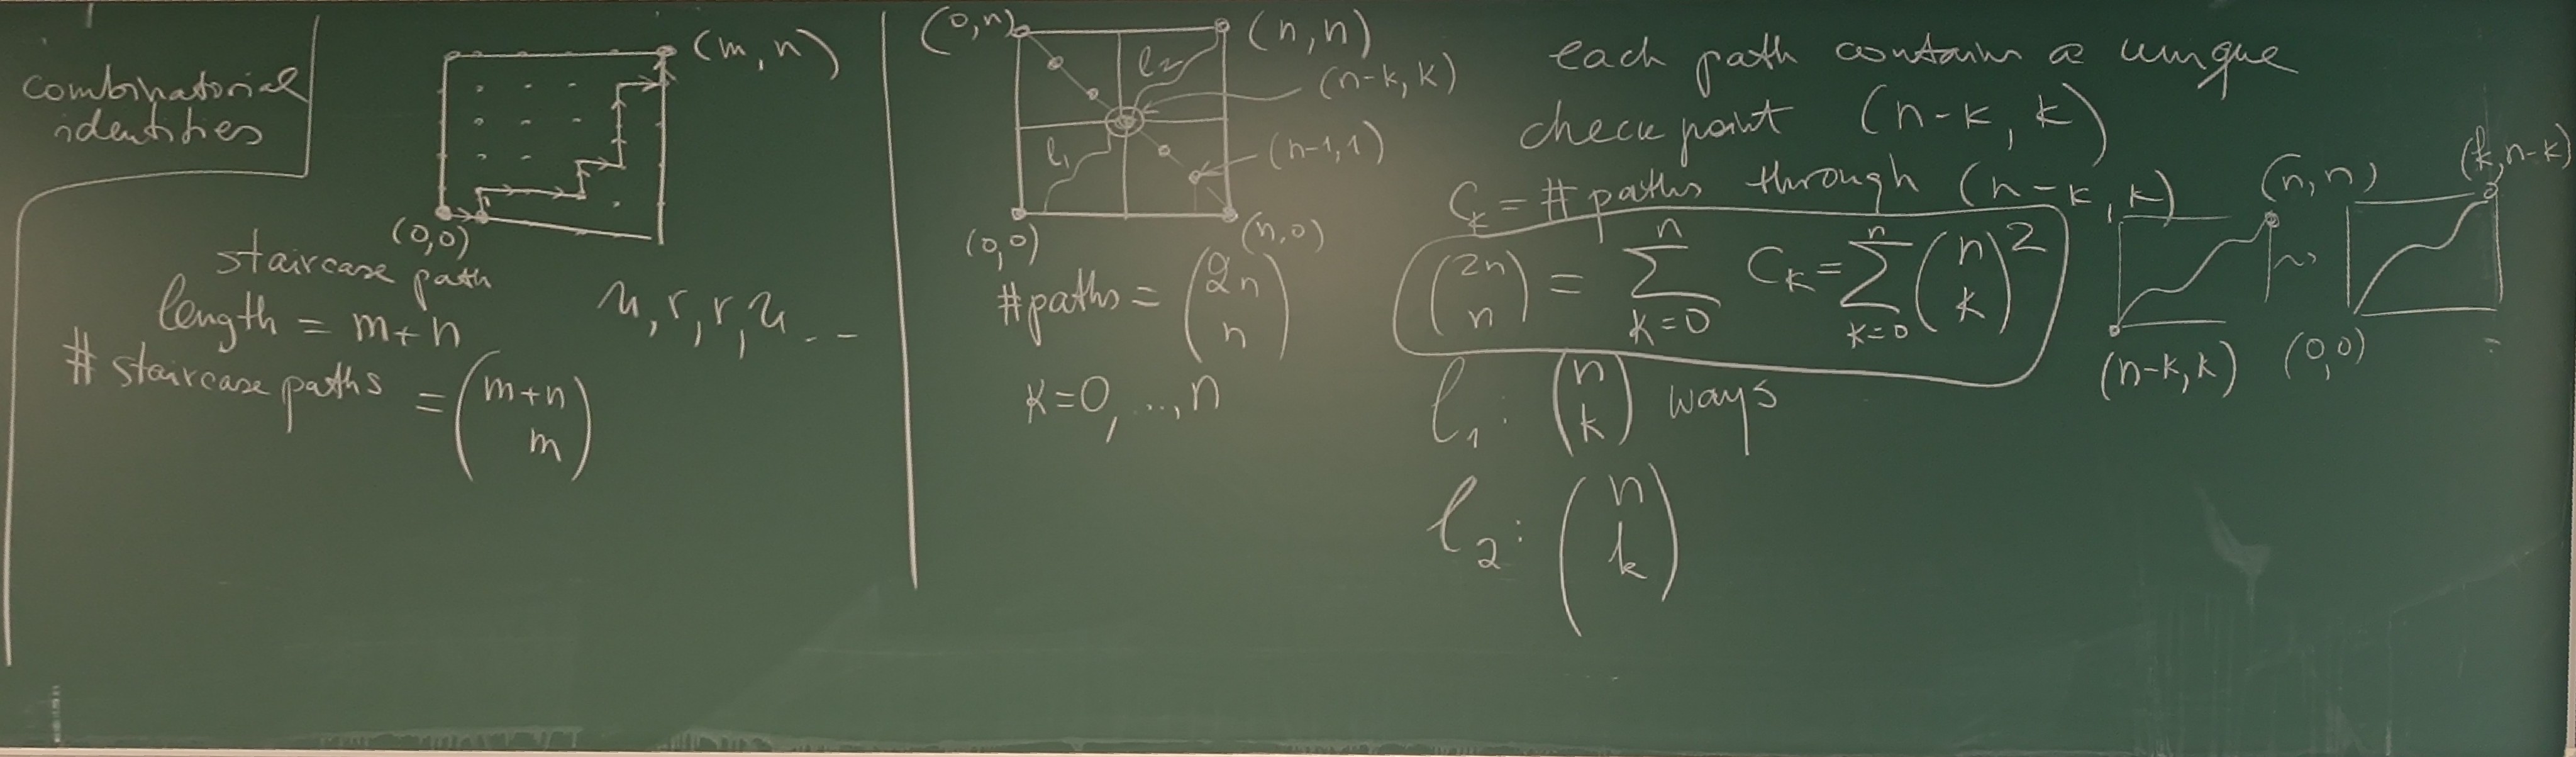 combinatorial
identities
(m,n)
(0,0)
staircase path
length = m+n
u, r, r, u...
# staircase paths = (m+n m)
(0,n)
(n,n)
l₂
(n-k, k)
l₁
(n-1,1)
(0,0)
(n,0)
# paths = (2n n)
k=0,...,n
each path contains a unique
check point (n-k, k)
C_k = # paths through (n-k, k)
(2n n) = ∑_{k=0}^{n} C_k = ∑_{k=0}^{n} (n k)²
l₁: (n k) ways
l₂: (n k)
(n,n)
(n-k,k)
~>
(k,n-k)
(0,0)